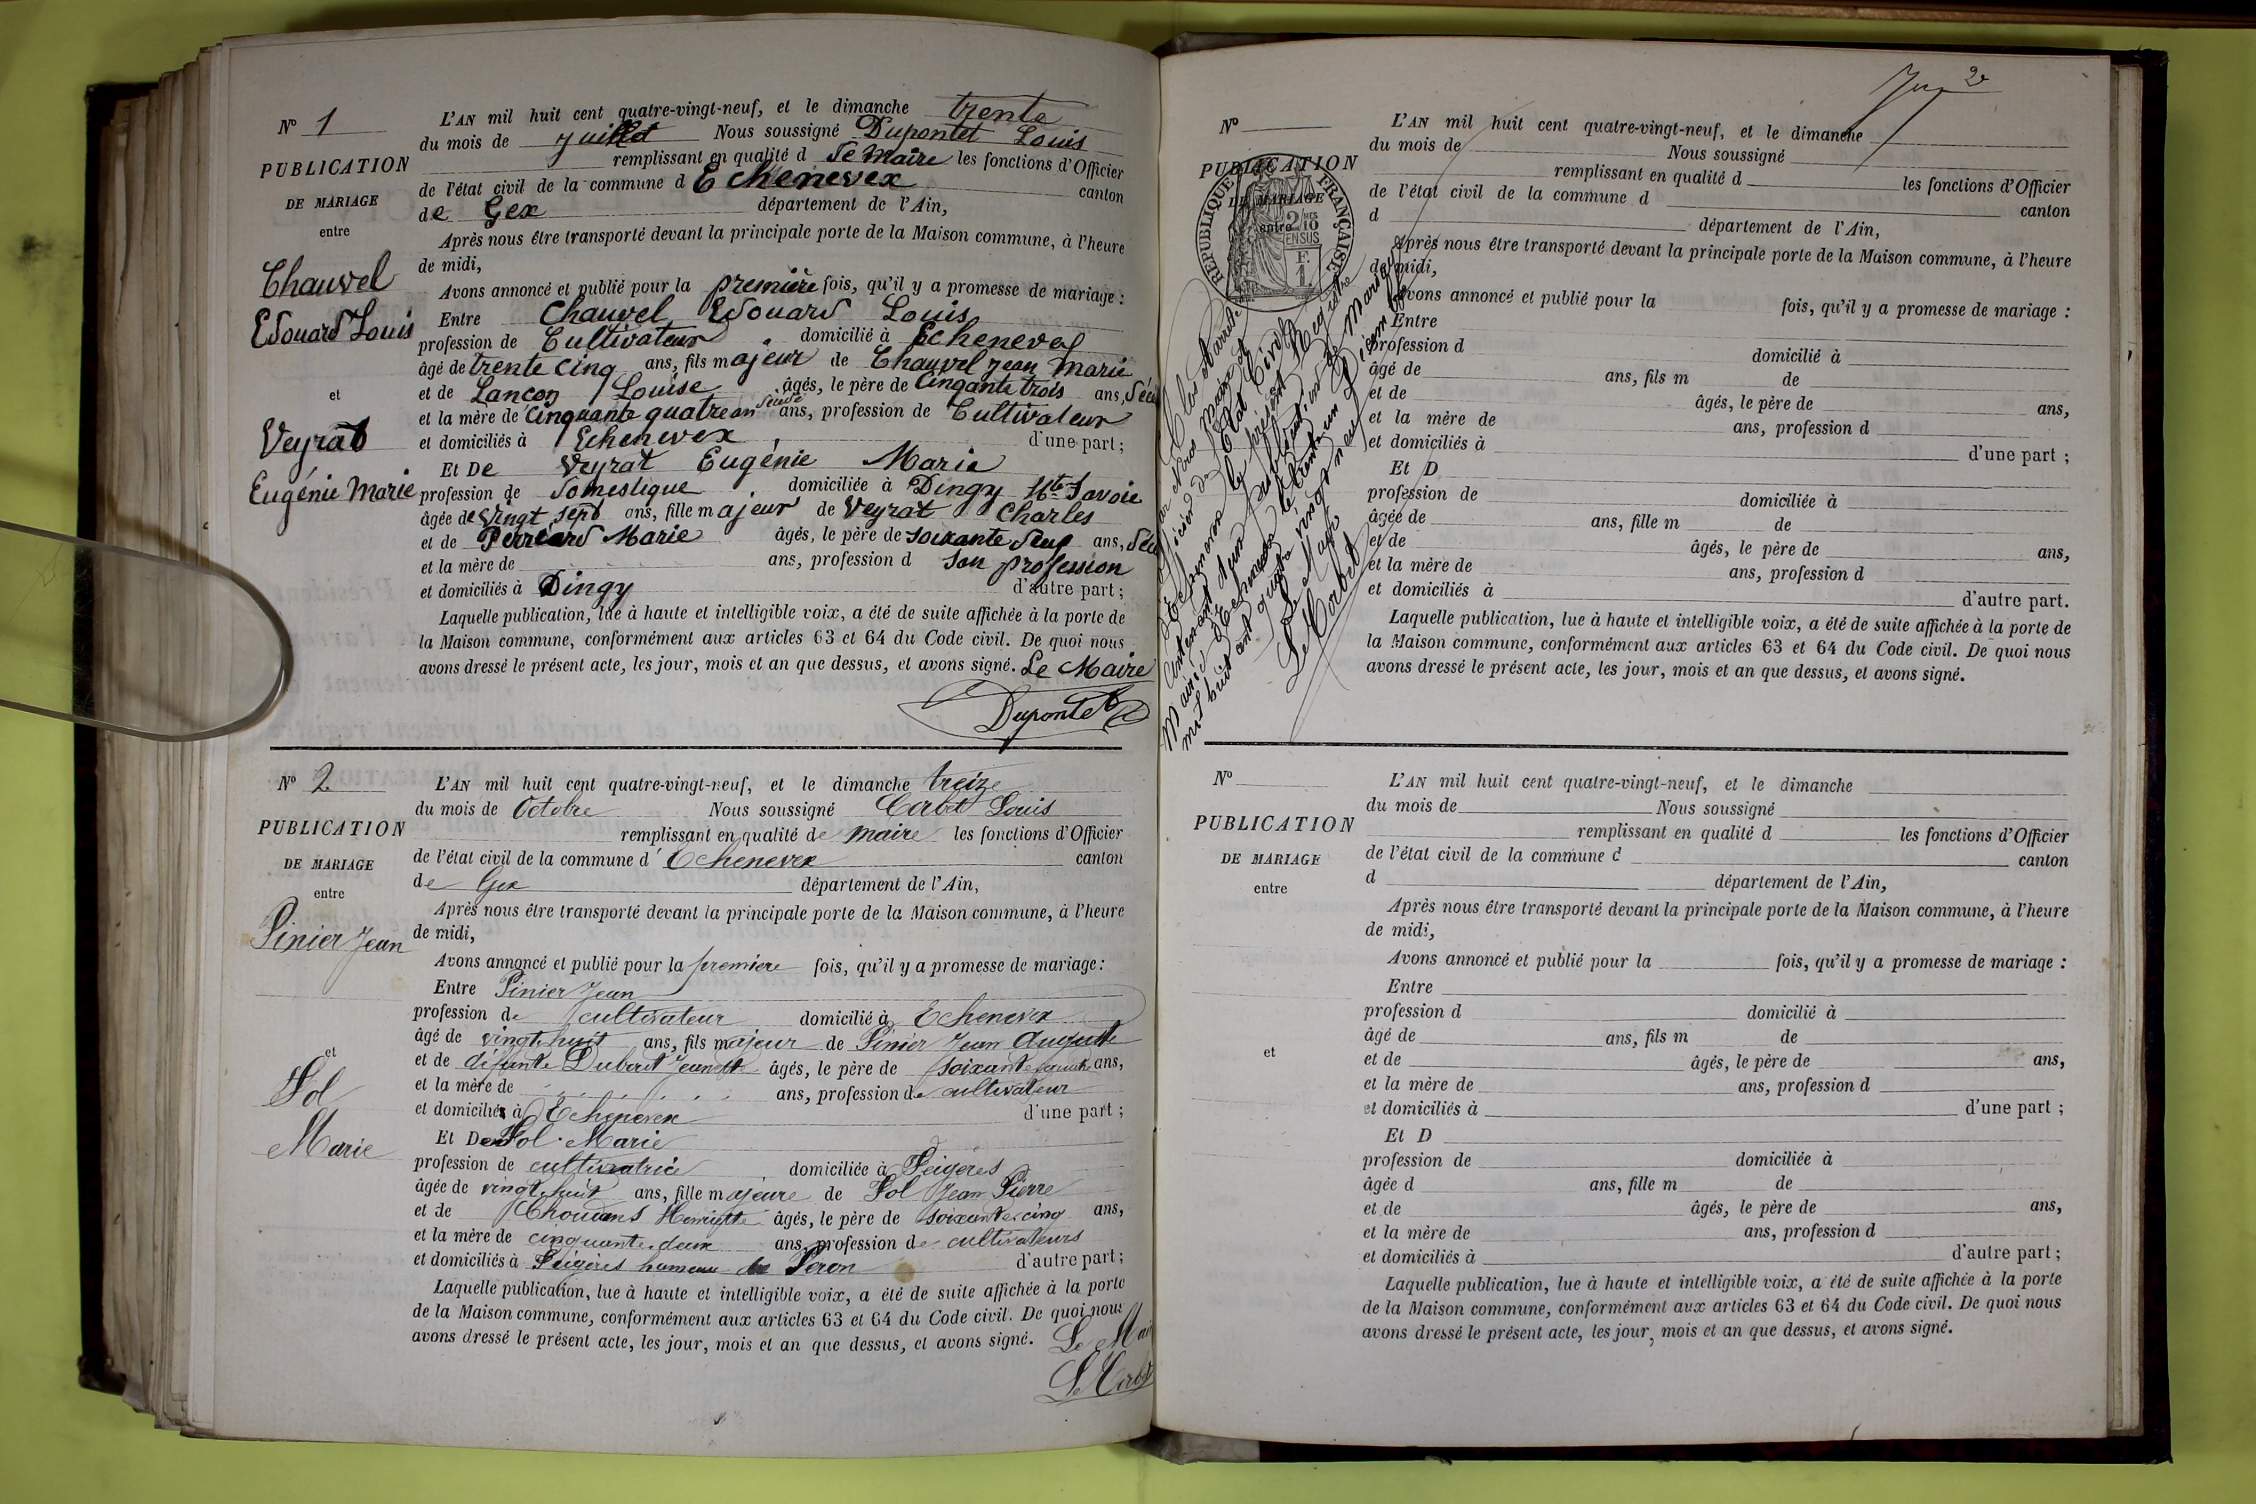 N° 1
PUBLICATION
DE MARIAGE
entre
Chauvel
Edouard Louis
et
Veyrat
Eugénie Marie
L'AN mil huit cent quatre-vingt-neuf, et le dimanche trente
du mois de Juillet Nous soussigné Dupontet Louis
remplissant en qualité d de Maire les fonctions d'Officier
de l'état civil de la commune d Echenevex canton
de Gex département de l'Ain,
Après nous être transporté devant la principale porte de la Maison commune, à l'heure
de midi,
Avons annoncé et publié pour la première fois, qu'il y a promesse de mariage :
Entre Chauvel Edouard Louis
profession de Cultivateur domicilié à Echenevex
âgé de trente cinq ans, fils majeur de Chauvel Jean Marie
et de Lançon Louise âgés, le père de Cinqante trois ans,
et la mère de Cinquante quatre an ans, profession de Cultivateur
et domiciliés à Echenevex d'une part ;
ET De Veyrat Eugénie Marie
profession de domestique domiciliée à Dingy Hte Savoie
âgée de vingt sept ans, fille majeur de Veyrat Charles
et de Perréard Marie âgés, le père de soixante ans,
et la mère de ans, profession d san profession
et domiciliés à Dingy d'autre part ;
Laquelle publication, lue à haute et intelligible voix, a été de suite affichée à la porte de
la Maison commune, conformément aux articles 63 et 64 du Code civil. De quoi nous
avons dressé le présent acte, les jour, mois et an que dessus, et avons signé. Le Maire
Dupontet
N° 2
PUBLICATION
DE MARIAGE
entre
Pinier Jean
et
Fol
Marie
L'AN mil huit cent quatre-vingt-neuf, et le dimanche treize
du mois de Octobre Nous soussigné Corbet Louis
remplissant en qualité de maire les fonctions d'Officier
de l'état civil de la commune d'Echenevex canton
de Gex département de l'Ain,
Après nous être transporté devant la principale porte de la Maison commune, à l'heure
de midi,
Avons annoncé et publié pour la premiere fois, qu'il y a promesse de mariage :
Entre Pinier Jean
profession de cultivateur domicilié à Echenevex
âgé de vingt huit ans, fils majeur de Pinier Jean Auguste
et de défunte Jeanette âgés, le père de soixante ans,
et la mère de ans, profession de cultivateur
et domiciliés à Echenevex d'une part ;
ET De Fol Marie
profession de cultivatrice domiciliée à Feigères
âgée de vingt huit ans, fille majeure de Fol Jean Pierre
et de Choudens Henriette âgés, le père de soixante cinq ans,
et la mère de cinquante deux ans, profession de cultivateurs
et domiciliés à Feigères hameau de Peron d'autre part ;
Laquelle publication, lue à haute et intelligible voix, a été de suite affichée à la porte
de la Maison commune, conformément aux articles 63 et 64 du Code civil. De quoi nous
avons dressé le présent acte, les jour, mois et an que dessus, et avons signé. Le Mai
Ls Corbet
2e
N°
PUBLICATION
DE MARIAGE
entre
RÉPUBLIQUE FRANÇAISE
2/10
EN SUS
F.
1
Clos et arrêté
par Nous Maire et
Officier de l'Etat Civil
d'Echenevex le présent Registre
Contenant deux publications de Mariage
Mairie d'Echenevex le trente un Décembre
mil huit cent quatre vingt neuf
Le Maire
Ls Corbet
L'AN mil huit cent quatre-vingt-neuf, et le dimanche
du mois de Nous soussigné
remplissant en qualité d les fonctions d'Officier
de l'état civil de la commune d canton
d département de l'Ain,
Après nous être transporté devant la principale porte de la Maison commune, à l'heure
de midi,
Avons annoncé et publié pour la fois, qu'il y a promesse de mariage :
Entre
profession d domicilié à
âgé de ans, fils m de
et de âgés, le père de ans,
et la mère de ans, profession d
et domiciliés à d'une part ;
ET D
profession de domiciliée à
âgée de ans, fille m de
et de âgés, le père de ans,
et la mère de ans, profession d
et domiciliés à d'autre part.
Laquelle publication, lue à haute et intelligible voix, a été de suite affichée à la porte de
la Maison commune, conformément aux articles 63 et 64 du Code civil. De quoi nous
avons dressé le présent acte, les jour, mois et an que dessus, et avons signé.
N°
PUBLICATION
DE MARIAGE
entre
et
L'AN mil huit cent quatre-vingt-neuf, et le dimanche
du mois de Nous soussigné
remplissant en qualité d les fonctions d'Officier
de l'état civil de la commune d canton
d département de l'Ain,
Après nous être transporté devant la principale porte de la Maison commune, à l'heure
de midi,
Avons annoncé et publié pour la fois, qu'il y a promesse de mariage :
Entre
profession d domicilié à
âgé de ans, fils m de
et de âgés, le père de ans,
et la mère de ans, profession d
et domiciliés à d'une part ;
Et D
profession de domiciliée à
âgée d ans, fille m de
et de âgés, le père de ans,
et la mère de ans, profession d
et domiciliés à d'autre part ;
Laquelle publication, lue à haute et intelligible voix, a été de suite affichée à la porte
de la Maison commune, conformément aux articles 63 et 64 du Code civil. De quoi nous
avons dressé le présent acte, les jour, mois et an que dessus, et avons signé.